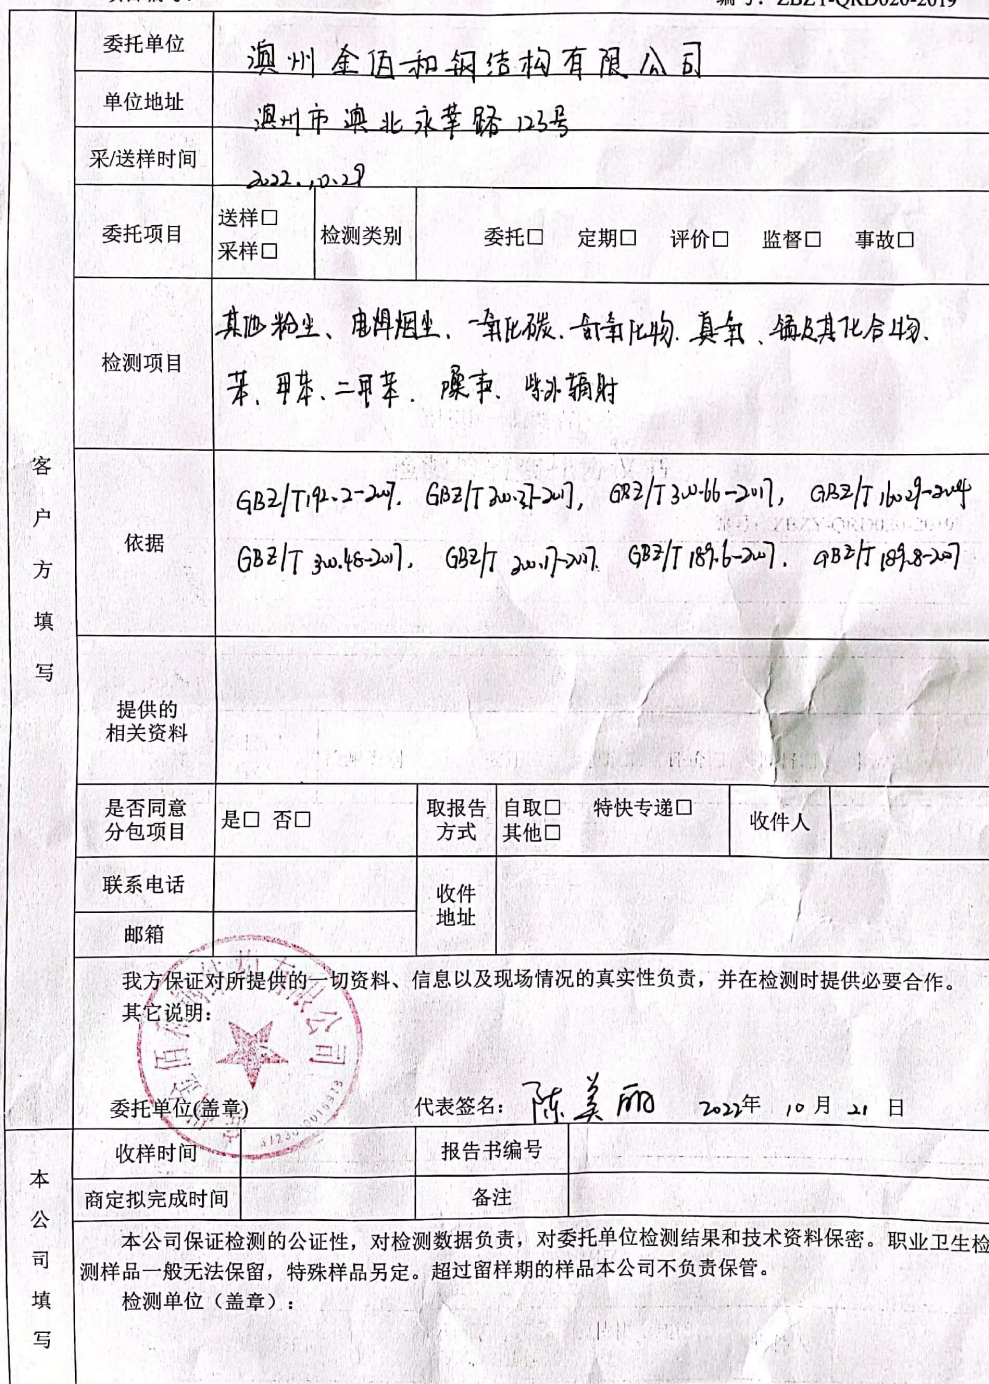 编号：ZBZY-QRD020-2019
委托单位 澳州金佰和钢结构有限公司
单位地址 澳州市澳北永莘路123号
采/送样时间 2022.10.29
委托项目 送样□ 采样□ 检测类别 委托□ 定期□ 评价□ 监督□ 事故□
检测项目 其他粉尘、电焊烟尘、一氧化碳、氮氧化物、臭氧、锰及其化合物、
苯、甲苯、二甲苯、噪声、紫外辐射
客户方填写
依据 GBZ/T192.2-2007, GBZ/T300.37-2017, GBZ/T300.66-2017, GBZ/T160.29-2004
GBZ/T 300.48-2017, GBZ/T 300.17-2017, GBZ/T 189.6-2007, GBZ/T 189.8-2007
提供的
相关资料
是否同意
分包项目 是□ 否□ 取报告
方式 自取□ 特快专递□
其他□ 收件人
联系电话 收件
地址
邮箱
我方保证对所提供的一切资料、信息以及现场情况的真实性负责，并在检测时提供必要合作。
其它说明：
委托单位(盖章) 代表签名：陈美丽 2022年 10 月 21 日
本公司填写
收样时间 报告书编号
商定拟完成时间 备注
本公司保证检测的公证性，对检测数据负责，对委托单位检测结果和技术资料保密。职业卫生检
测样品一般无法保留，特殊样品另定。超过留样期的样品本公司不负责保管。
检测单位（盖章）：